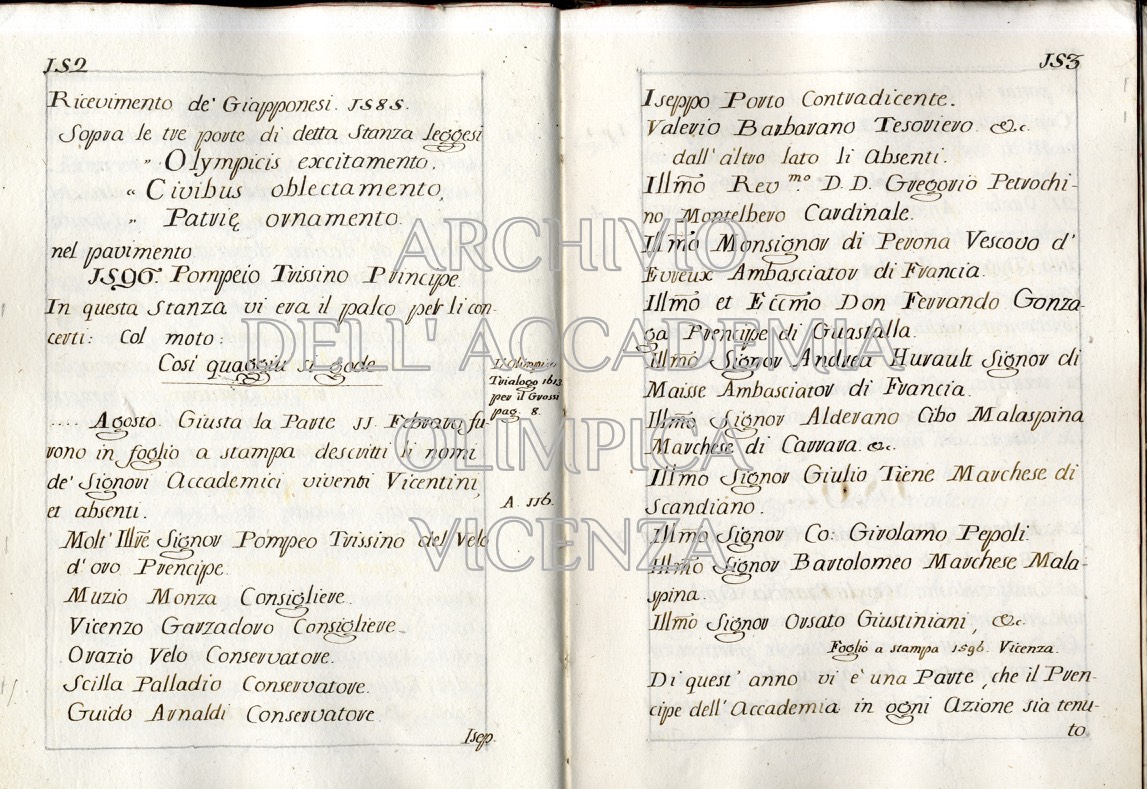 152
Ricevimento de' Giapponesi. 1585.
Sopra le tre porte di detta Stanza leggesi
" Olympicis excitamento.
" Civibus oblectamento,
" Patrię ornamento.
nel pavimento
1596. Pompeio Trissino Principe.
In questa Stanza vi era il palco per li con-
certi: Col moto:
Cosi quaggiu si gode
.... Agosto. Giusta la Parte 11. Febraro fu-
rono in foglio a stampa descritti li nomi
de' Signori Accademici viventi Vicentini,
et absenti.
Molt' Illrẽ Signor Pompeo Trissino del Velo
d' oro Prencipe.
Muzio Monza Consigliere.
Vicenzo Garzadoro Consigliere.
Orazio Velo Conservatore.
Scilla Palladio Conservatore.
Guido Arnaldi Conservatore
Isep.
Trialogo 1613
per il Grossi
pag. 8.
A. 116.
153
Iseppo Porto Contradicente.
Valerio Barbarano Tesoriero. &c.
dall' altro lato li Absenti.
Illm̃o Rev.mo D. D. Gregorio Petrochi-
no Montelbero Cardinale.
Illm̃o Monsignor di Perona Vescovo d'
Evreux Ambasciator di Francia.
Illm̃o et Eccm̃o Don Ferrando Gonza-
ga Prencipe di Guastalla.
Illm̃o Signor Andrea Hurault Signor di
Maisse Ambasciator di Francia.
Illm̃o Signor Alderano Cibo Malaspina
Marchese di Carrara. &c.
Illmo Signor Giulio Tiene Marchese di
Scandiano.
Illmo Signor Co: Girolamo Pepoli.
Illmo Signor Bartolomeo Marchese Mala-
spina.
Illm̃o Signor Orsato Giustiniani, &c.
Foglio a stampa 1596. Vicenza.
Di quest' anno vi è una Parte, che il Pren-
cipe dell' Accademia in ogni Azione sia tenu-
to
ARCHIVIO
DELL'ACCADEMIA
OLIMPICA
VICENZA